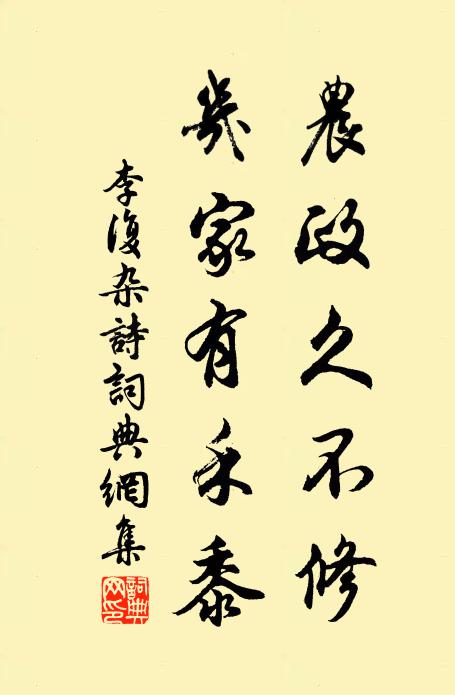 農政久不修
幾家有禾黍
李復杂詩詞典網集
詞典
网印